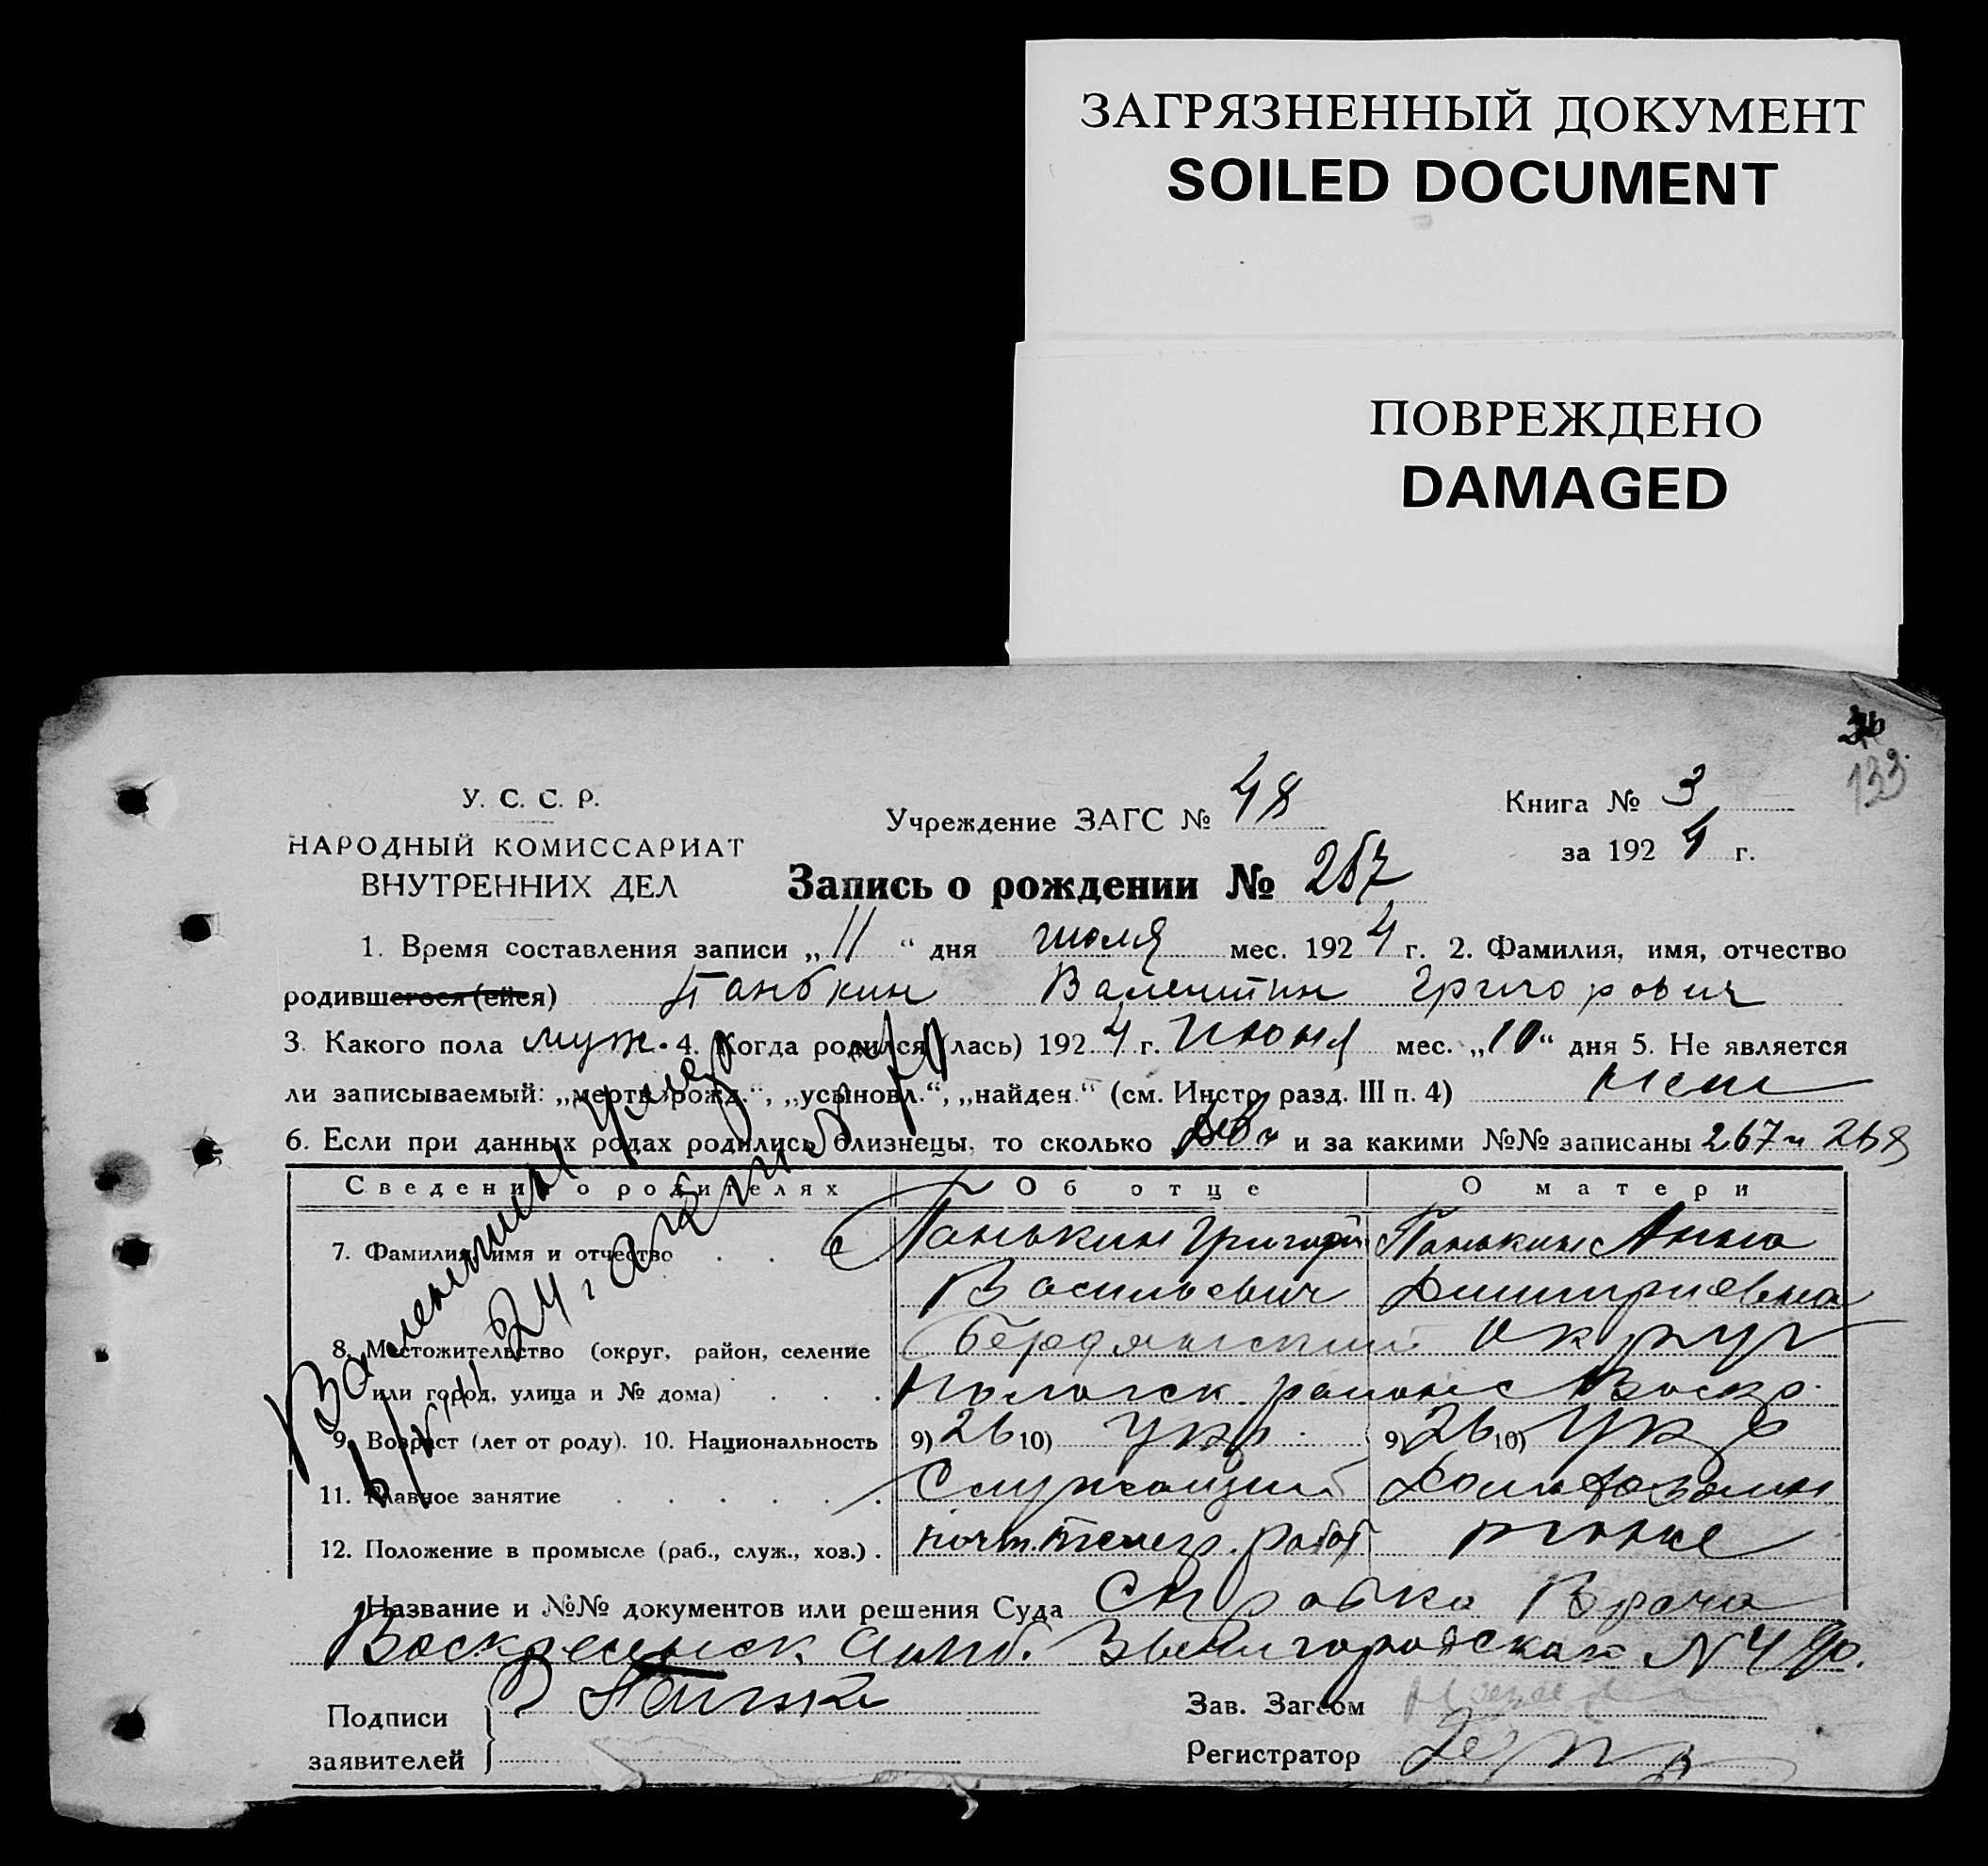 ЗАГРЯЗНЕННЫЙ ДОКУМЕНТ
SOILED DOCUMENT
ПОВРЕЖДЕНО
DAMAGED
133
У. С. С. Р.
НАРОДНЫЙ КОМИССАРИАТ
ВНУТРЕННИХ ДЕЛ
Учреждение ЗАГС № 48
Книга № 3
за 1924 г.
Запись о рождении № 267
1. Время составления записи „11“ дня июля мес. 1924 г. 2. Фамилия, имя, отчество
родившегося (ейся) Панькин Валентин Григорович
3. Какого пола муж. 4. Когда родился (лась) 1924 г. Июня мес. „10“ дня 5. Не является
ли записываемый: „мертв рожд.“, „усыновл.“, „найден.“ (см. Инстр. разд. III п. 4) Нет
6. Если при данных родах родились близнецы, то сколько и за какими №№ записаны 267 и 268
Сведения о родителях Об отце О матери
7. Фамилия, имя и отчество Панькин Григорий Панькин Анна
Васильевич Димитриевна
8. Местожительство (округ, район, селение Бердянский округ
или город, улица и № дома) Пологск. района с Воскр.
9. Возраст (лет от роду). 10. Национальность 9) 26 10) Укр. 9) 26 10) Укр
11. Главное занятие Служащий Домохозяин
12. Положение в промысле (раб., служ., хоз.) почт. телегр. работ
Название и №№ документов или решения Суда Справка Врача
Воскресенск. Амб. Звенигородская N 490.
Подписи
заявителей
Зав. Загсом
Регистратор
Валентин умер
24 г.